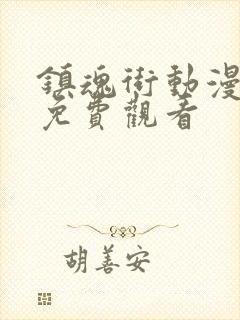 鎮魂街動漫
免費觀看
胡善安